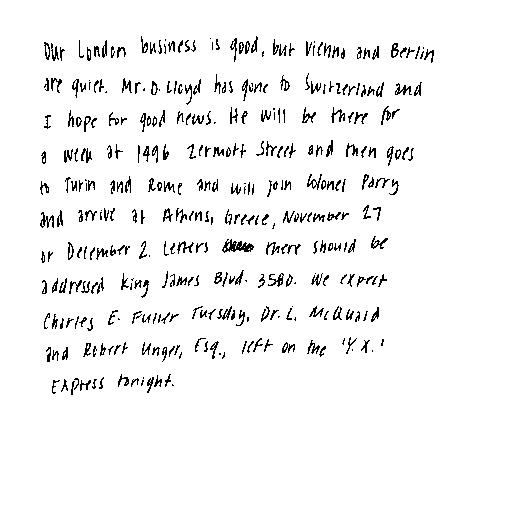 Our London business is good, but Vienna and Berlin
are quiet. Mr. D. Lloyd has gone to Switzerland and
I hope for good news. He will be there for
a week at 1496 Zermott Street and then goes
to Turin and Rome and will join Colonel Parry
and arrive at Athens, Greece, November 27
or December 2. Letters there should be
addressed King James Blvd. 3580. We expect
Charles E. Fuller Tuesday, Dr. L. McQuaid
and Robert Unger, Esq., left on the 'Y.X.'
Express tonight.